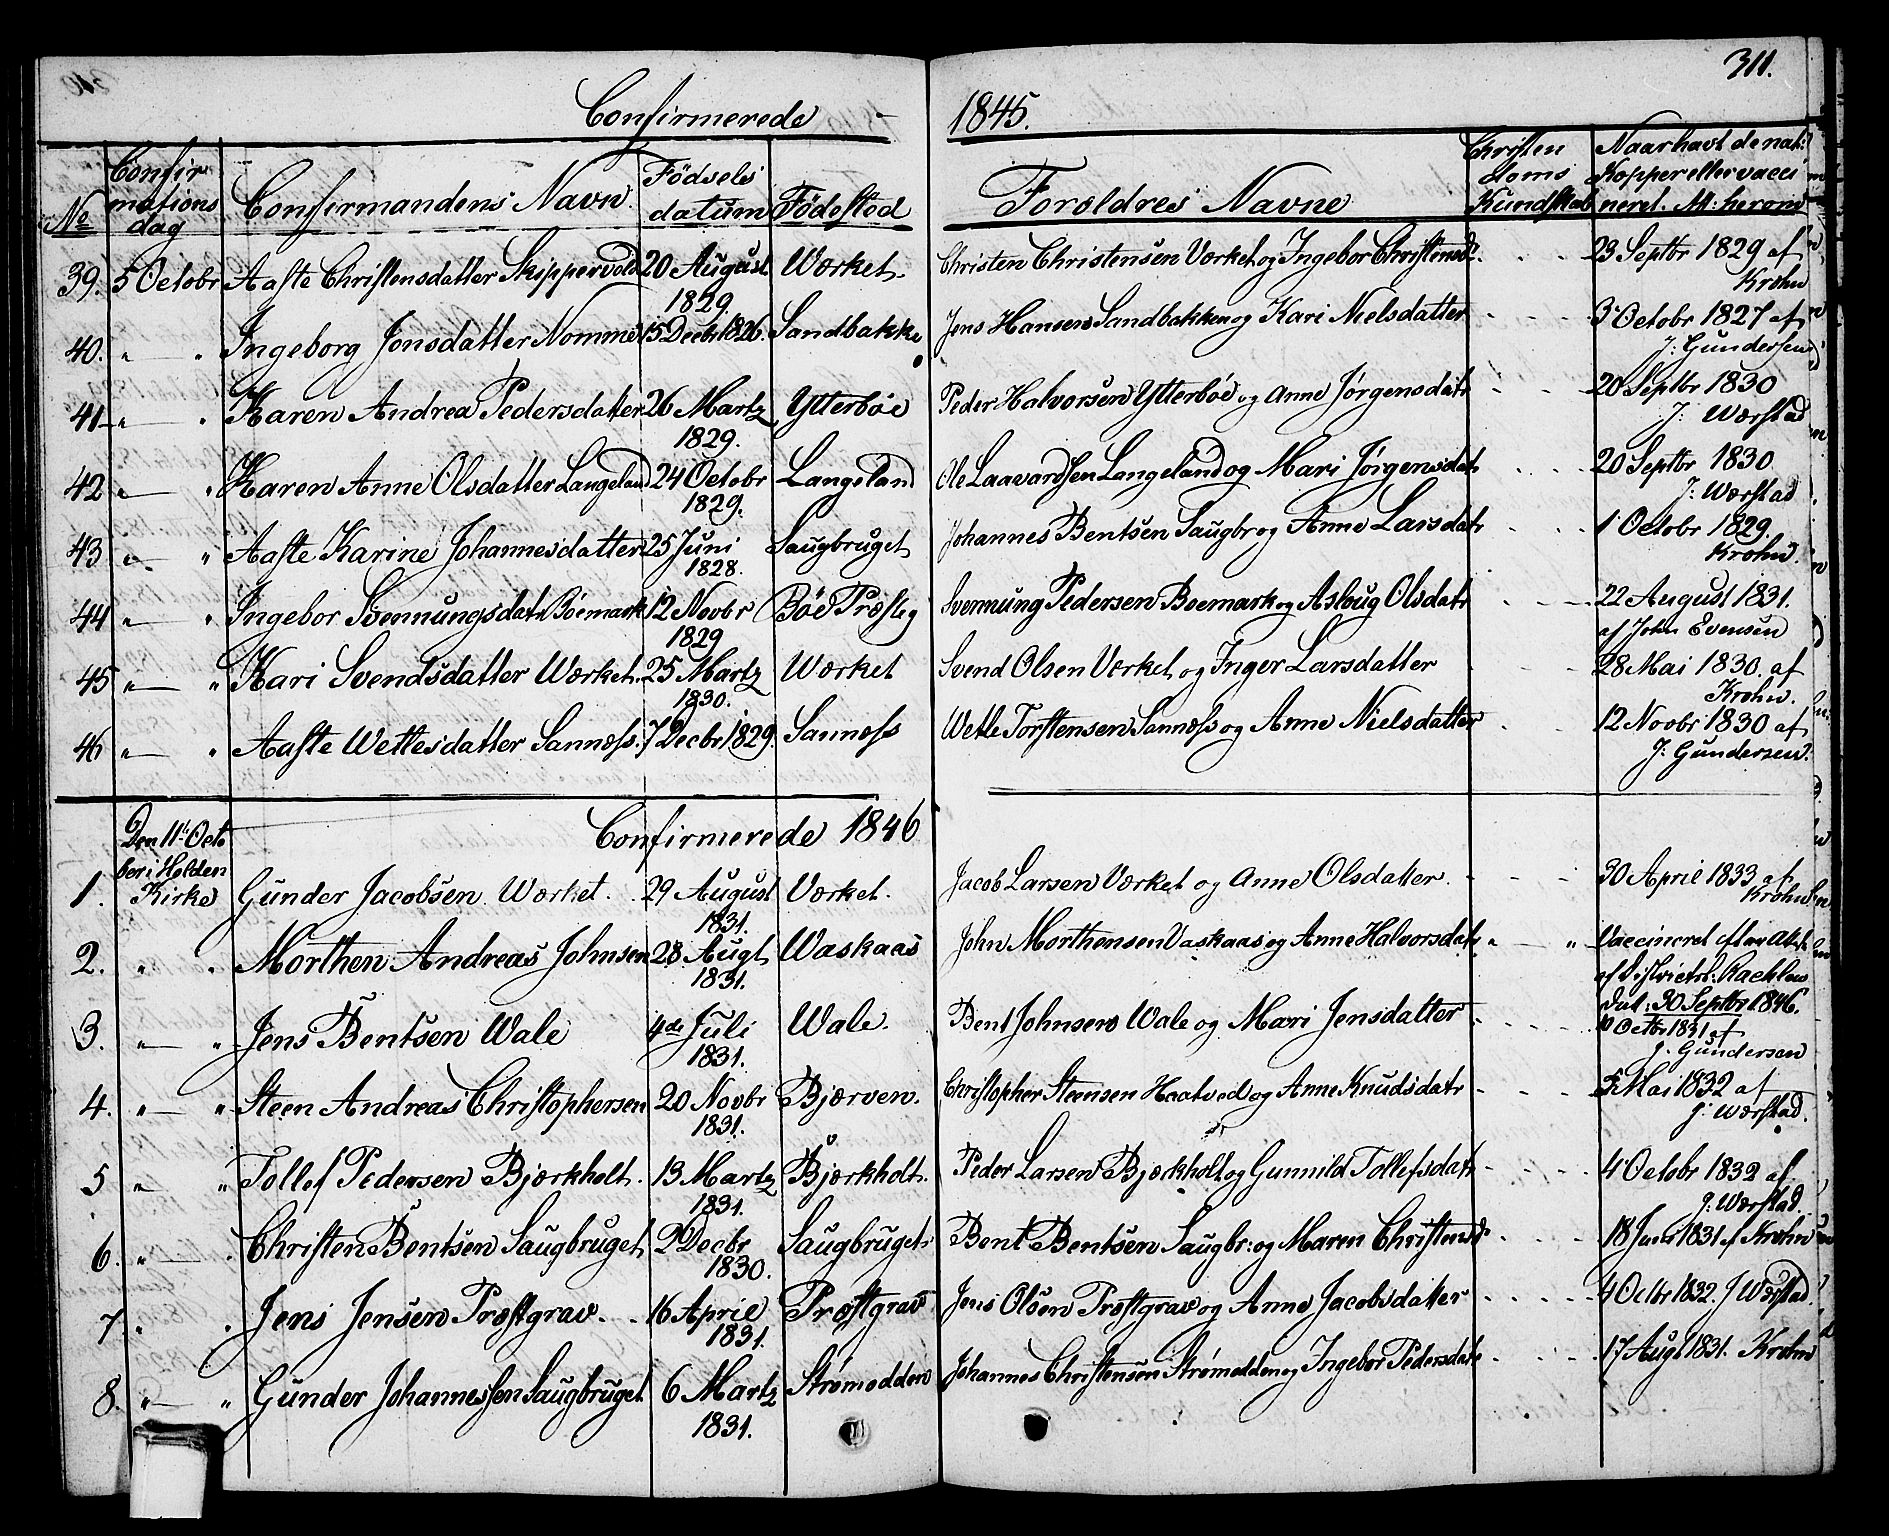 311.
Confirmerede 1845.
No
Confirmations dag
Confirmandens Navn
Fødsels datum
Fødested
Foreldres Navne
Christendoms Kundskab
Naar havt de nat: Kopper eller vaccineret. M: herom
39. 5 Octobr Aaste Christensdatter Skippervold 20 August 1829. Wærket. Christen Christensen Værket og Ingebor Christensd. 23 Septbr 1829 af Krohn
40. " " Ingeborg Jonsdatter Nomme 15 Decbr 1826. Sandbakke Jens Hansen Sandbakken og Kari Nielsdatter 3 Octobr 1827 af J: Gundersen
41 " " Karen Andrea Pedersdatter 26 Martz 1829. Ytterböe Peder Halvorsen Ytterböe og Anne Jørgensdatr 20 Septbr 1830 J: Wærstad
42 " " Karen Anne Olsdatter Langeland 24 Octobr 1829. Langeland Ole Laavardsen Langeland og Mari Jørgensdatr 20 Septbr 1830 J: Wærstad
43 " " Aaste Karine Johannesdatter 25 Juni 1828. Saugbruget Johannes Bentsen Saugbr og Anne Larsdatr 1 Octobr 1829. Krohn.
44 " " Ingebor Svennungsdatr Böemark 12 Novbr 1829 Böe Præsteg Svennung Pedersen Boemark og Aslaug Olsdatr 22 August 1831. af John Evensen
45 " " Kari Svendsdatter Wærket. 25 Martz 1830. Wærket Svend Olsen Værket og Inger Larsdatter 28 Mai 1830. af Krohn.
46 " " Aaste Wetlesdatter Sannæss. 7 Decbr 1829. Sannæss Wetle Torstensen Sannæss og Anne Nielsdatter 12 Novbr 1830 af J: Gundersen.
Confirmerede 1846
Den 11te Octo
ber i Holden
1. Kirke Gunder Jacobsen Wærket. 29 August 1831. Værket. Jacob Larsen Værket og Anne Olsdatter. 30 April 1833 af Krohn
2. " " Morthen Andreas Johnsen 28 Augt 1831. Waskaas John Morthensen Vaskaas og Anne Halvorsdatr " " Vaccineret efter Att. af Districtsl: dat: 30 Septbr 1846.
3. " " Jens Bentsen Wale 4de Juli 1831. Wale. Bent Johnsen Wale og Mari Jensdatter 10 Octbr 1831 af J. Gundersen
4. " " Steen Andreas Christophersen 20 Novbr 1831. Bjærven. Christopher Steensen Haatved og Anne Knudsdatr 5 Mai 1832 af J: Wærstad.
5 " " Tollef Pedersen Bjærkholt. 13 Martz 1831. Bjærkholt. Peder Larsen Bjærkholt og Gunnild Tollefsdatr 4 Octobr 1832 af J: Wærstad.
6. " . Christen Bentsen Saugbruget 2 Decbr 1830. Saugbruget Bent Bentsen Saugbr: og Maren Christensd. 18 1831 af Krohn
7 " . Jens Jensen Præstgrav. 16 April 1831. Præstgrav Jens Olsen Præstgrav og Anne Jacobsdatter 4 Octbr 1832. J Wærstad
8. " " Gunder Johannessen Saugbruget. 6 Martz 1831. Strømodden Johannes Christensen Strømodden og Ingebor Pedersdatr 17 Augt 1831. Krohn